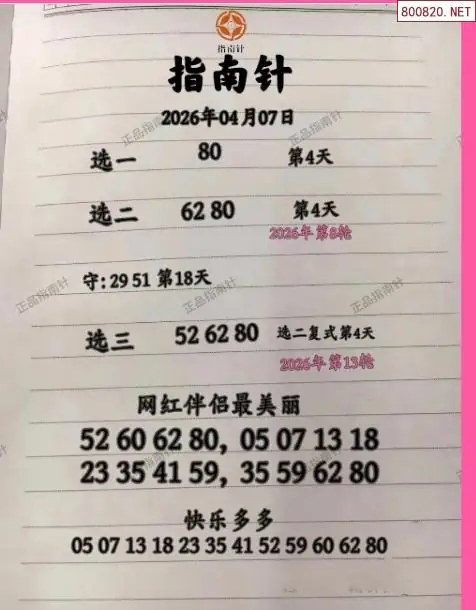 800820.NET
指南针
指南针
2026年04月07日
选一 80 第4天
选二 62 80 第4天
2026年 第8轮
守: 29 51 第18天
选三 52 62 80 选二复式第4天
2026年 第13轮
网红伴侣最美丽
52 60 62 80, 05 07 13 18
23 35 41 59, 35 59 62 80
快乐多多
05 07 13 18 23 35 41 52 59 60 62 80
正品指南针
正品指南针
正品指南针
正品指南针
正品指南针
正品指南针